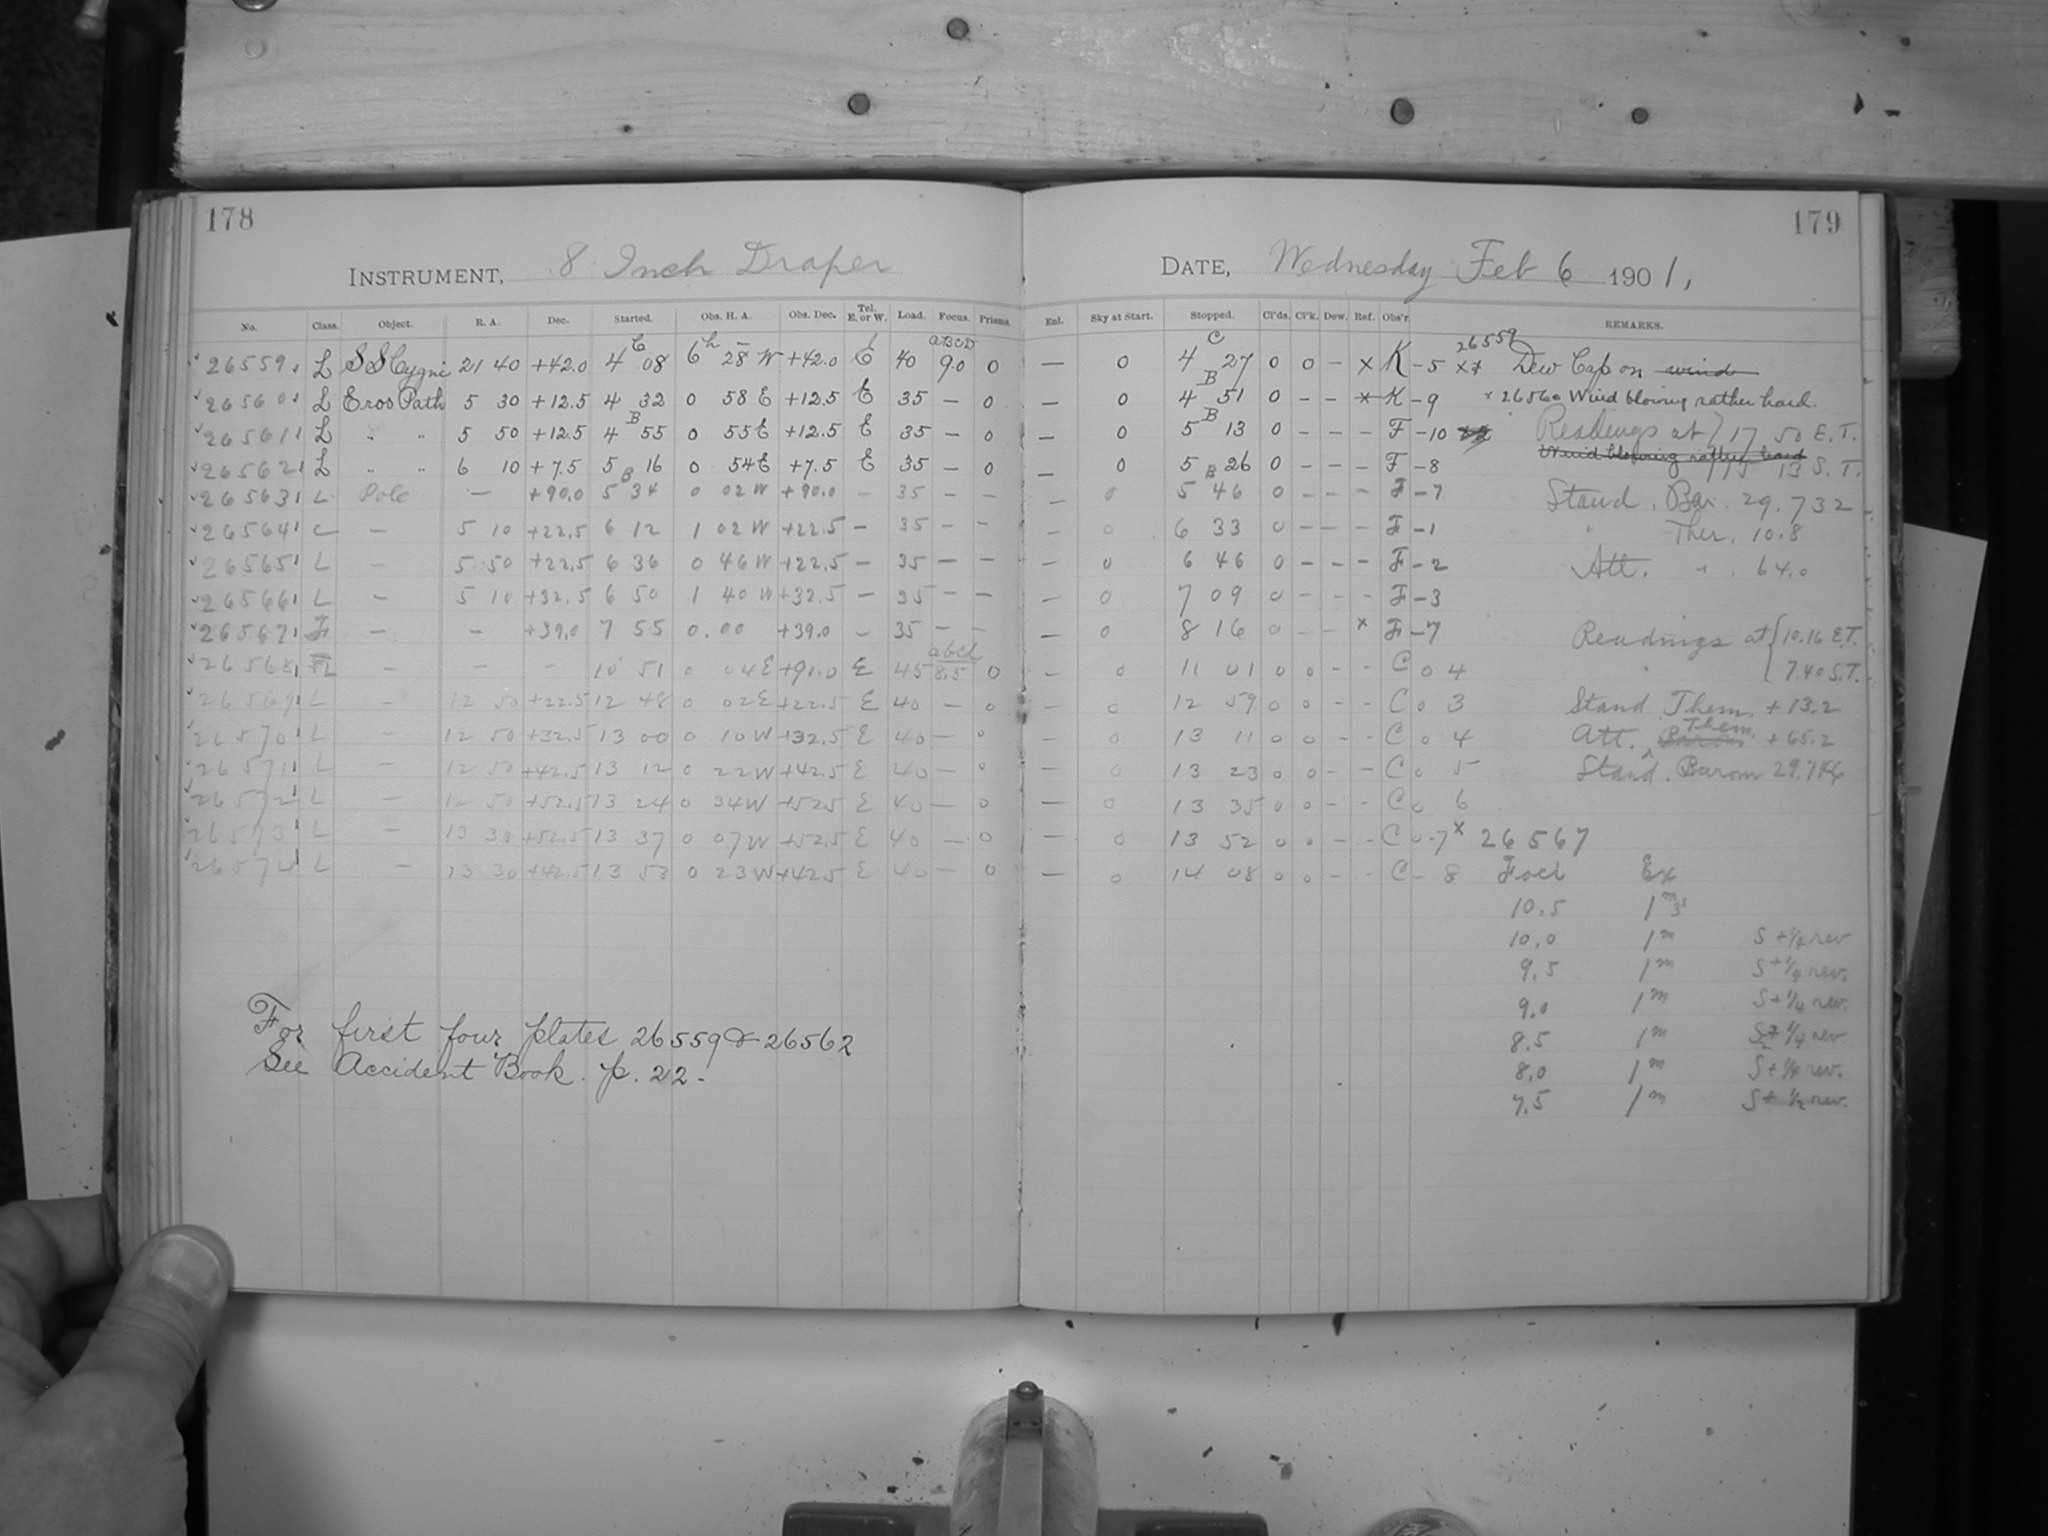 178
INSTRUMENT, 8 Inch Draper
No. Class. Object. R. A. Dec. Started. Obs. H. A. Obs. Dec. Tel. E. or W. Load. Focus. Prisms.
26559 L SS Cygni 21 40 +42.0 4 08 6h 28 W +42.0 E 40 ABCD 9.0 0
26560 L Eros Path 5 30 +12.5 4 32 0 58 E +12.5 E 35 — 0
26561 L " " 5 50 +12.5 4 55 0 55 E +12.5 E 35 — 0
26562 L " " 6 10 +7.5 5 16 0 54 E +7.5 E 35 — 0
26563 L Pole — +90.0 5 34 0 02 W +90.0 — 35 — —
26564 C — 5 10 +22.5 6 12 1 02 W +22.5 — 35 — —
26565 L — 5 50 +22.5 6 36 0 46 W +22.5 — 35 — —
26566 L — 5 10 +32.5 6 50 1 40 W +32.5 — 35 — —
26567 F — — +39.0 7 55 0.00 +39.0 — 35 — —
26568 L — — — 10 51 0 04 E +90.0 E 45 abcd 8.5 0
26569 L — 12 50 +22.5 12 48 0 02 E +22.5 E 40 — 0
26570 L — 12 50 +32.5 13 00 0 10 W +32.5 E 40 — 0
26571 L — 12 50 +42.5 13 12 0 22 W +42.5 E 40 — 0
26572 L — 12 50 +52.5 13 24 0 34 W +52.5 E 40 — 0
26573 L — 13 30 +52.5 13 37 0 07 W +52.5 E 40 — 0
26574 L — 13 30 +42.5 13 53 0 23 W +42.5 E 40 — 0
For first four plates 26559 & 26562
See Accident Book. p. 22.
179
DATE, Wednesday Feb 6 1901,
Enl. Sky at Start. Stopped. Cl'ds. Cl'k. Dew. Ref. Obs'r. REMARKS.
— 0 4 27 0 0 — x K — 5 x7 26559 Dew Cap on wind
— 0 4 51 0 — — x K — 9 x 26560 Wind blowing rather hard.
— 0 5 13 0 — — — F — 10 Readings at 17 50 E.T.
Wind blowing rather hard
— 0 5 26 0 — — — F — 8 13 S.T.
0 5 46 0 — — — F — 7 Stand. Bar. 29.732
— 0 6 33 0 — — — F — 1 " Ther. 10.8
— 0 6 46 0 — — — F — 2 Att. " . 64.0
— 0 7 09 0 — — — F — 3
— 0 8 16 0 — — x F — 7 Readings at 10.16 E.T.
— 0 11 01 0 0 — — C 0 4 7.40 S.T.
— 0 12 59 0 0 — — C 0 3 Stand Them. +13.2
— 0 13 11 0 0 — — C 0 4 Att. Them. +65.2
— 0 13 23 0 0 — — C 0 5 Stand. Barom 29.746
— 0 13 35 0 0 — — C 0 6
— 0 13 52 0 0 — — C 0 -7 x 26567
— 0 14 08 0 0 — — C — 8 Foci Ex
10.5 1m 3s
10.0 1m S + 1/4 rev
9.5 1m S + 1/4 rev.
9.0 1m S + 1/4 rev.
8.5 1m 1/4 rev
8.0 1m S + 1/4 rev.
7.5 1m S + 1/2 rev.